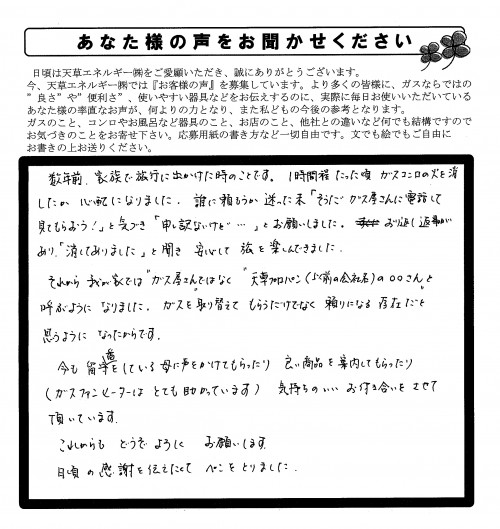 あなた様の声をお聞かせください
日頃は天草エネルギー㈱をご愛顧いただき、誠にありがとうございます。
今、天草エネルギー㈱では『お客様の声』を募集しています。より多くの皆様に、ガスならではの
”良さ”や”便利さ”、使いやすい器具などをお伝えするのに、実際に毎日お使いいただいている
あなた様の率直なお声が、何よりの力となり、また私どもの今後の参考となります。
ガスのこと、コンロやお風呂など器具のこと、お店のこと、他社との違いなど何でも結構ですので
お気づきのことをお寄せ下さい。応募用紙の書き方など一切自由です。文でも絵でもご自由に
お書きの上お送りください。
数年前、家族で旅行に出かけた時のことです。1時間程たった頃 ガスコンロの火を消
したか 心配になりました。誰に頼もうか 迷った末「そうだ ガス屋さんに電話して
見てもらおう！」と気づき「申し訳ないけど…」とお願いしました。折り返し返事が
あり「消してありました」と聞き 安心して 旅を楽しんできました。
それから 我が家では"ガス屋さん"ではなく "天草プロパン(以前の会社名)の〇〇さん"と
呼ぶように なりました。ガスを取り替えて もらうだけでなく 頼りになる 存在だと
思うように なったからです。
今も 留守番をしている母に声をかけてもらったり 良い商品を案内してもらったり
(ガスファンヒーターは とても助かっています) 気持ちのいい お付き合いを させて
頂いています。
これからも どうぞ よろしく お願いします。
日頃の感謝を伝えたくて ペンをとりました。